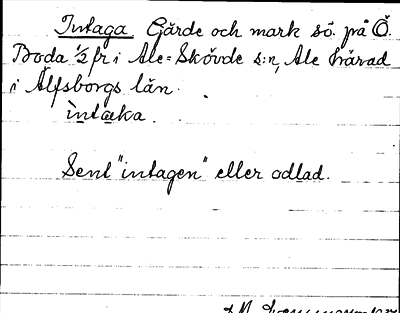 Intaga Gärde och mark sö. på Ö.
Boda 1/2 fr i Ale-Skövde s:n, Ale härad
i Älfsborgs län.
ìntáka.
Sent "intagen" eller odlad.